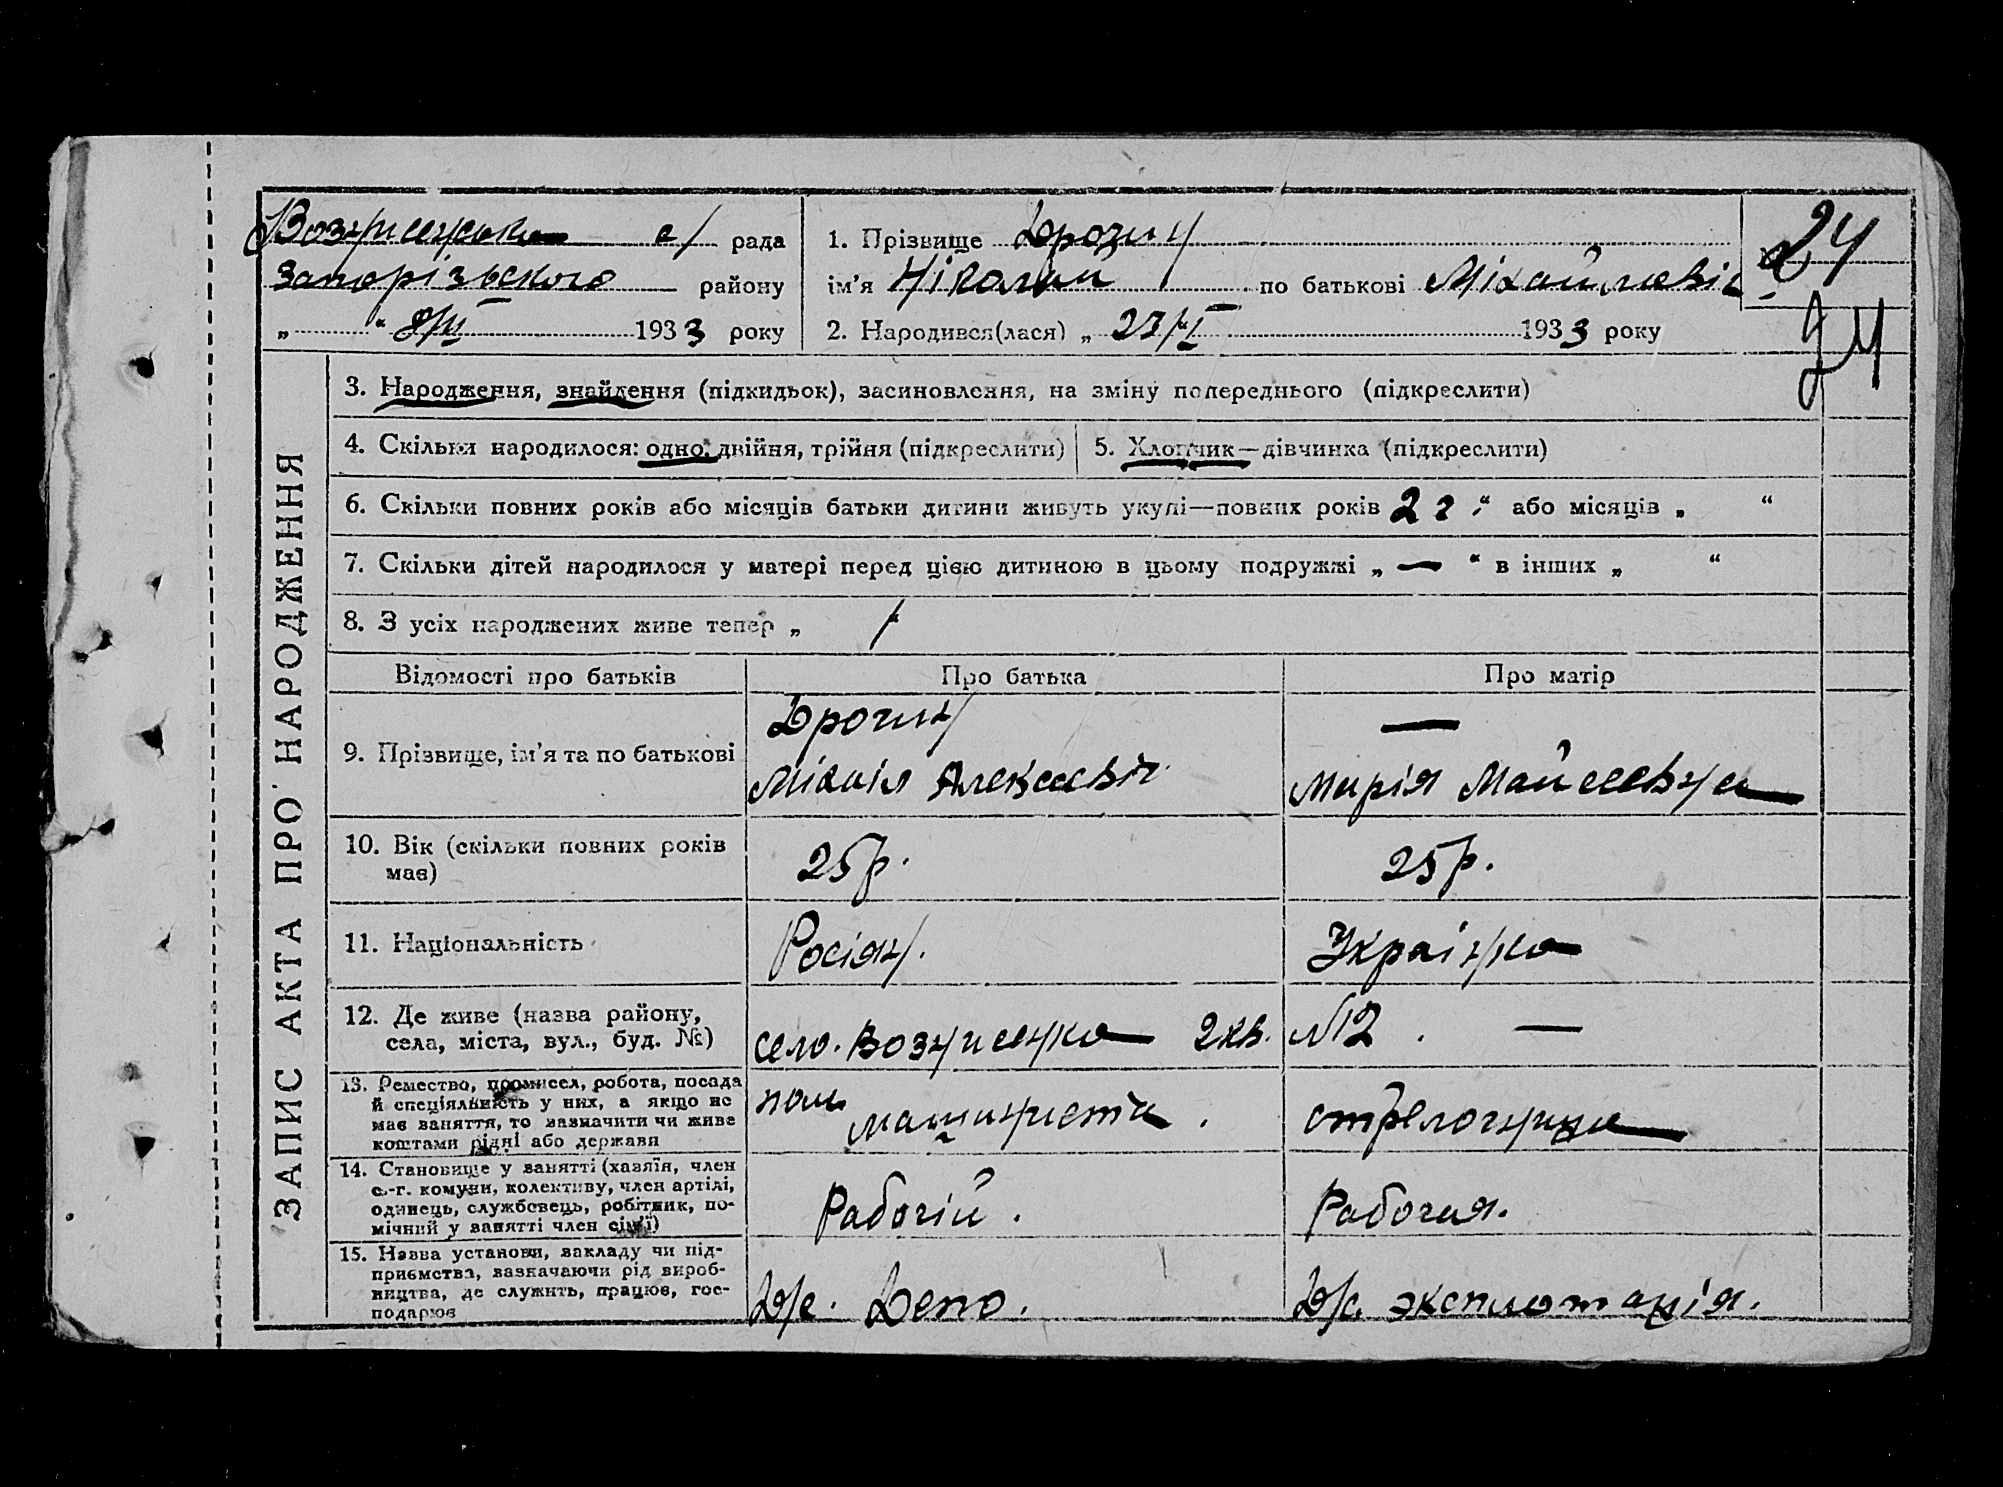 Вознисенська с/ рада
Запорізьского району
„ “ 8/III 1933 року
1. Прізвище Дрозин
ім’я Ніколай по батькові Міхайловіч
2. Народився(лася) „ 27/“I 1933 року
24
24
ЗАПИС АКТА ПРО НАРОДЖЕННЯ
3. Народження, знайдення (підкидьок), засиновлення, на зміну попереднього (підкреслити)
4. Скільки народилося: одно, двійня, трійня (підкреслити)
5. Хлопчик—дівчинка (підкреслити)
6. Скільки повних років або місяців батьки дитини живуть укупі—повних років 2 г. “ або місяців „ “
7. Скільки дітей народилося у матері перед цією дитиною в цьому подружжі „ — “ в інших „ “
8. З усіх народжених живе тепер „
Відомості про батьків Про батька Про матір
9. Прізвище, ім’я та по батькові
Дрогин
Міхаіл Алексеевіч
—
Марія Майсеевна
10. Вік (скільки повних років
має)
25 р. 25 р.
11. Національність Росіян. Украінка
12. Де живе (назва району,
села, міста, вул., буд. №)
село. Вознисенка 2 кв. №12. —
13. Ремество, промисел, робота, посада
й спеціяльність у них, а якщо не
має заняття, то зазначити чи живе
коштами рідні або держави
пом
машиниста.
стрелочница
14. Становище у занятті (хазяїн, член
с.-г. комуни, колективу, член артілі,
одинець, службовець, робітник, по-
мічний у занятті член сім’ї)
Рабочій. Рабочая.
15. Назва установи, закладу чи під-
приємства, зазначаючи рід вироб-
ництва, де служить, працює, гос-
подарює
Д/с. Депо. Д/с. эксплотація.